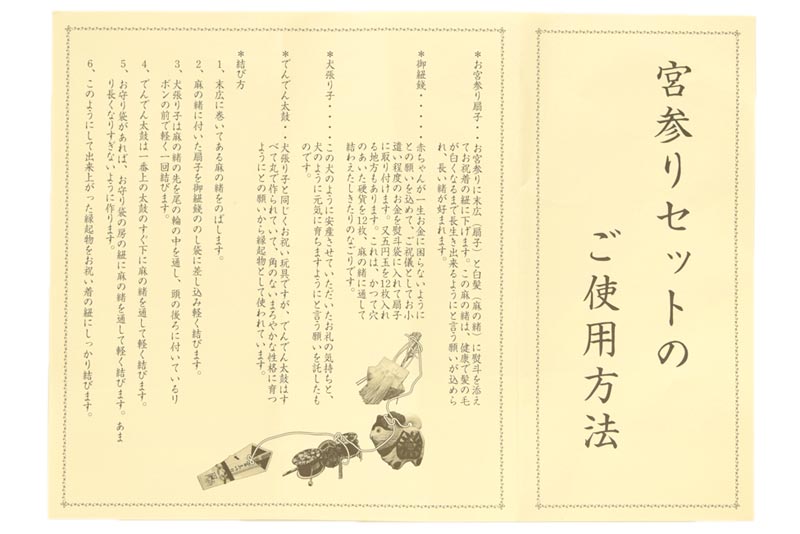 宮参りセットの
ご使用方法
＊お宮参り扇子・・お宮参りに末広（扇子）と白髪（麻の緒）に熨斗を添え
てお祝着の紐に下げます。この麻の緒は、健康で髪の毛
が白くなるまで長生き出来るようにと言う願いが込めら
れ、長い緒が好まれます。
＊御紐錢・・・・・赤ちゃんが一生お金に困らないように
との願いを込めて、ご祝儀としてお小
遣い程度のお金を熨斗袋に入れて扇子
に取り付けます。又五円玉を12枚入れ
る地方もあります。これは、かつて穴
のあいた硬貨を12枚、麻の緒に通して
結わえたしきたりのなごりです。
＊犬張り子・・・・この犬のように安産させていただいたお礼の気持ちと、
犬のように元気に育ちますようにと言う願いを託したも
のです。
＊でんでん太鼓・・犬張り子と同じくお祝い玩具ですが、でんでん太鼓はす
べて丸で作られていて、角のないまろやかな性格に育つ
ようにとの願いから縁起物として使われています。
＊結び方
1、末広に巻いてある麻の緒をのばします。
2、麻の緒に付いた扇子を御紐錢ののし袋に差し込み軽く結びます。
3、犬張り子は麻の緒の先を尾の輪の中を通し、頭の後ろに付いているリ
ボンの前で軽く一回結びます。
4、でんでん太鼓は一番上の太鼓のすぐ下に麻の緒を通して軽く結びます。
5、お守り袋があれば、お守り袋の房の紐に麻の緒を通して軽く結びます。あま
り長くなりすぎないように作ります。
6、このようにして出来上がった縁起物をお祝い着の紐にしっかり結びます。